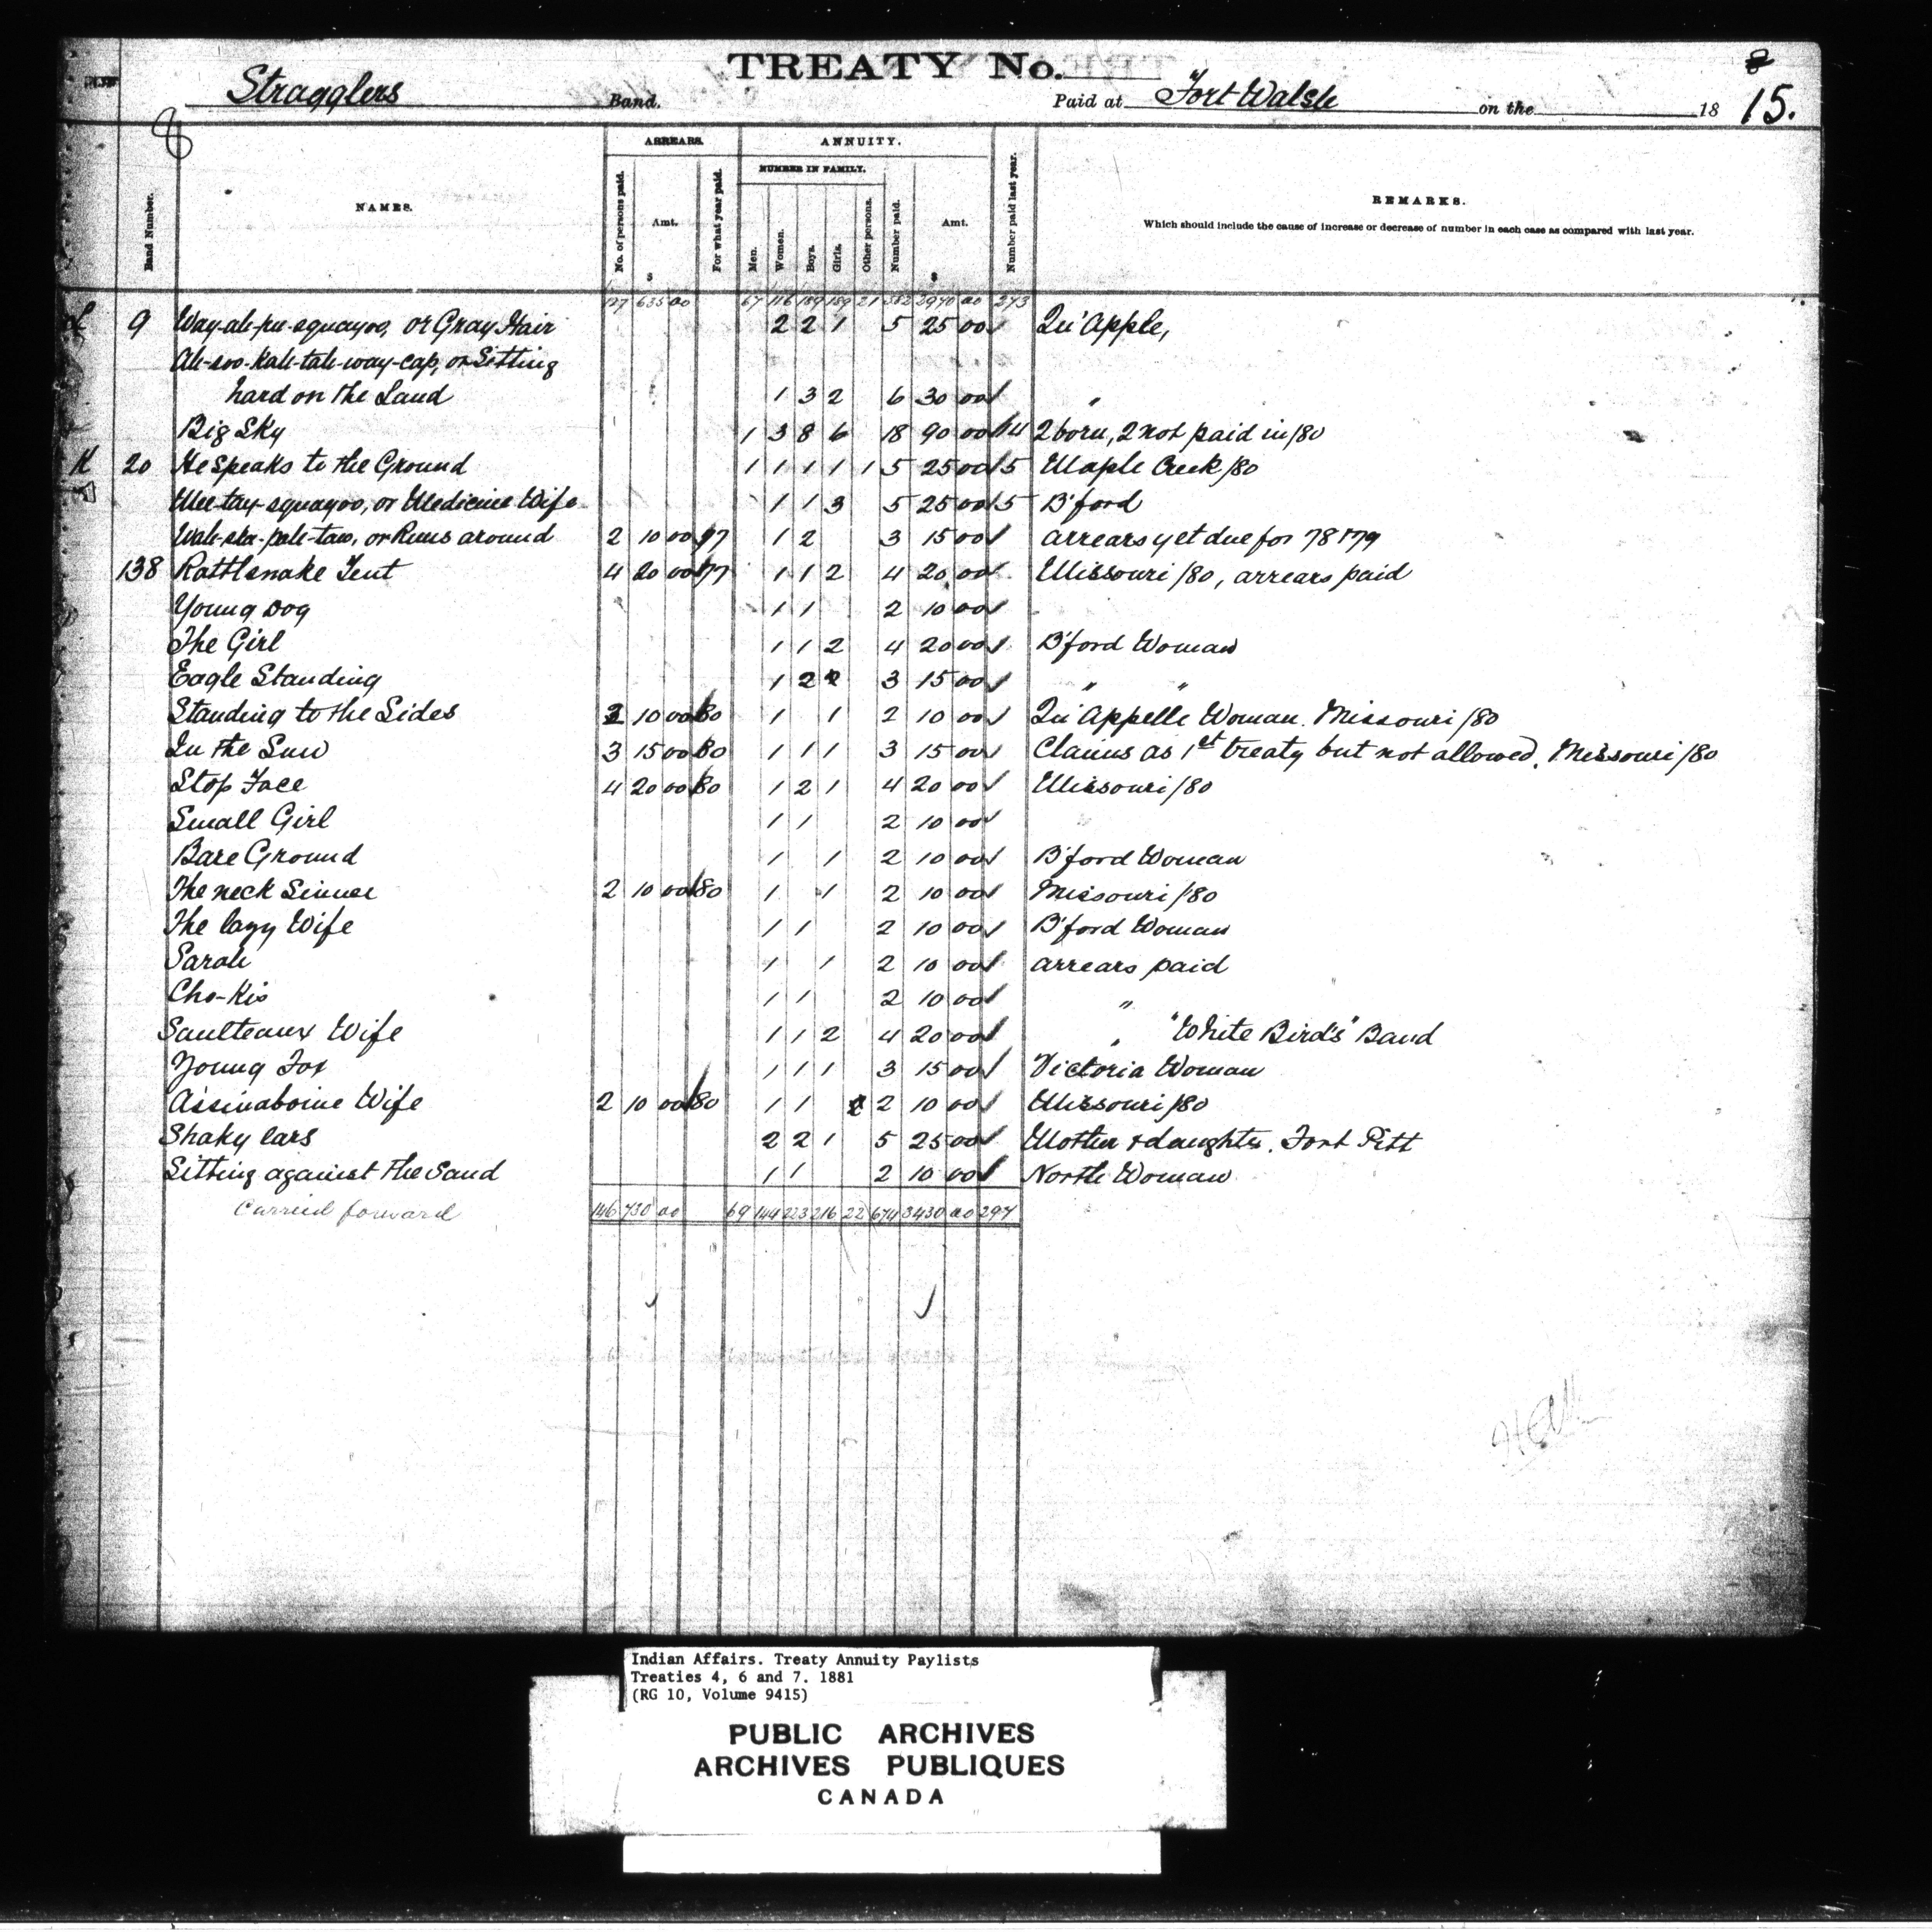 TREATY No.
Stragglers Band. Paid at Fort Walsh on the 18 15.
8
Band Number.
NAMES.
ARREARS.
No. of persons paid.
Amt.
$
For what year paid.
ANNUITY.
NUMBER IN FAMILY.
Men.
Women.
Boys.
Girls.
Other persons.
Number paid.
Amt.
$
Number paid last year.
REMARKS.
Which should include the cause of increase or decrease of number in each case as compared with last year.
127 635 00 67 116 189 189 21 582 2970 00 273
9 Way-ah-pu-squayoo, or Gray Hair 2 2 1 5 25 00 Qu'Apple,
Ah-soo-kah-tah-way-cap, or Sitting
hard on the Land 1 3 2 6 30 00 "
Big Sky 1 3 8 6 18 90 00 14 2 born, 2 not paid in /80
K 20 He speaks to the Ground 1 1 1 1 1 5 25 00 5 Maple Creek /80
Mee-tay-squayoo, or Medicine Wife 1 1 3 5 25 00 5 B'ford
Wah-ska-pah-taw, or Runs around 2 10 00 77 1 2 3 15 00 arrears yet due for 78 & 79
138 Rattlsnake Tent 4 20 00 77 1 1 2 4 20 00 Missouri /80, arrears paid
Young Dog 1 1 2 10 00
The Girl 1 1 2 4 20 00 B'ford Woman
Eagle Standing 1 2 3 15 00 " "
Standing to the Sides 2 10 00 80 1 1 2 10 00 Qu'Appelle Woman. Missouri /80
In the Sun 3 15 00 80 1 1 1 3 15 00 Claims as 1st treaty but not allowed. Missouri /80
Stop Face 4 20 00 80 1 2 1 4 20 00 Missouri /80
Small Girl 1 1 2 10 00
Bare Ground 1 1 2 10 00 B'ford Woman
The neck Sinner 2 10 00 80 1 1 2 10 00 Missouri /80
The lazy Wife 1 1 2 10 00 B'ford Woman
Sarah 1 1 2 10 00 arrears paid
Cho-Kis 1 1 2 10 00 "
Saulteaux Wife 1 1 2 4 20 00 " "White Bird's" Band
Young Fox 1 1 1 3 15 00 Victoria Woman
Assinaboine Wife 2 10 00 80 1 1 2 10 00 Missouri /80
Shaky Ears 2 2 1 5 25 00 Mother & daughter. Fort Pitt
Sitting against the Sand 1 1 2 10 00 North Woman
Carried forward 146 730 00 69 144 223 216 22 674 3430 00 297
Indian Affairs. Treaty Annuity Paylists
Treaties 4, 6 and 7. 1881
(RG 10, Volume 9415)
PUBLIC ARCHIVES
ARCHIVES PUBLIQUES
CANADA